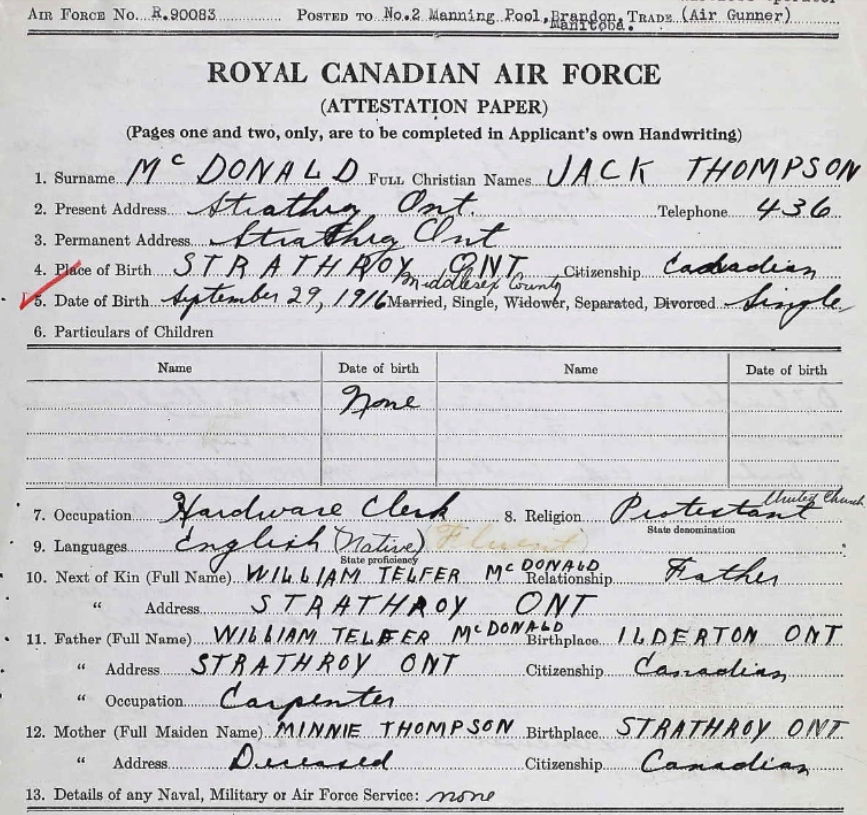 AIR FORCE NO. R.90083 POSTED TO No.2 Manning Pool, Brandon, Manitoba. TRADE (Air Gunner)
ROYAL CANADIAN AIR FORCE
(ATTESTATION PAPER)
(Pages one and two, only, are to be completed in Applicant's own Handwriting)
1. Surname McDONALD FULL Christian Names JACK THOMPSON
2. Present Address Strathroy Ont. Telephone 436
3. Permanent Address Strathroy Ont
4. Place of Birth STRATHROY ONT Citizenship Canadian
Middlesex County
5. Date of Birth September 29, 1916 Married, Single, Widower, Separated, Divorced Single
6. Particulars of Children
Name Date of birth Name Date of birth
None
United Church
7. Occupation Hardware Clerk 8. Religion Protestant
State denomination
9. Languages English (Native) Fluent
State proficiency
10. Next of Kin (Full Name) WILLIAM TELFER McDONALD Relationship Father
" Address STRATHROY ONT
11. Father (Full Name) WILLIAM TELFER McDONALD Birthplace ILDERTON ONT
" Address STRATHROY ONT Citizenship Canadian
" Occupation Carpenter
12. Mother (Full Maiden Name) MINNIE THOMPSON Birthplace STRATHROY ONT
" Address Deceased Citizenship Canadian
13. Details of any Naval, Military or Air Force Service: none